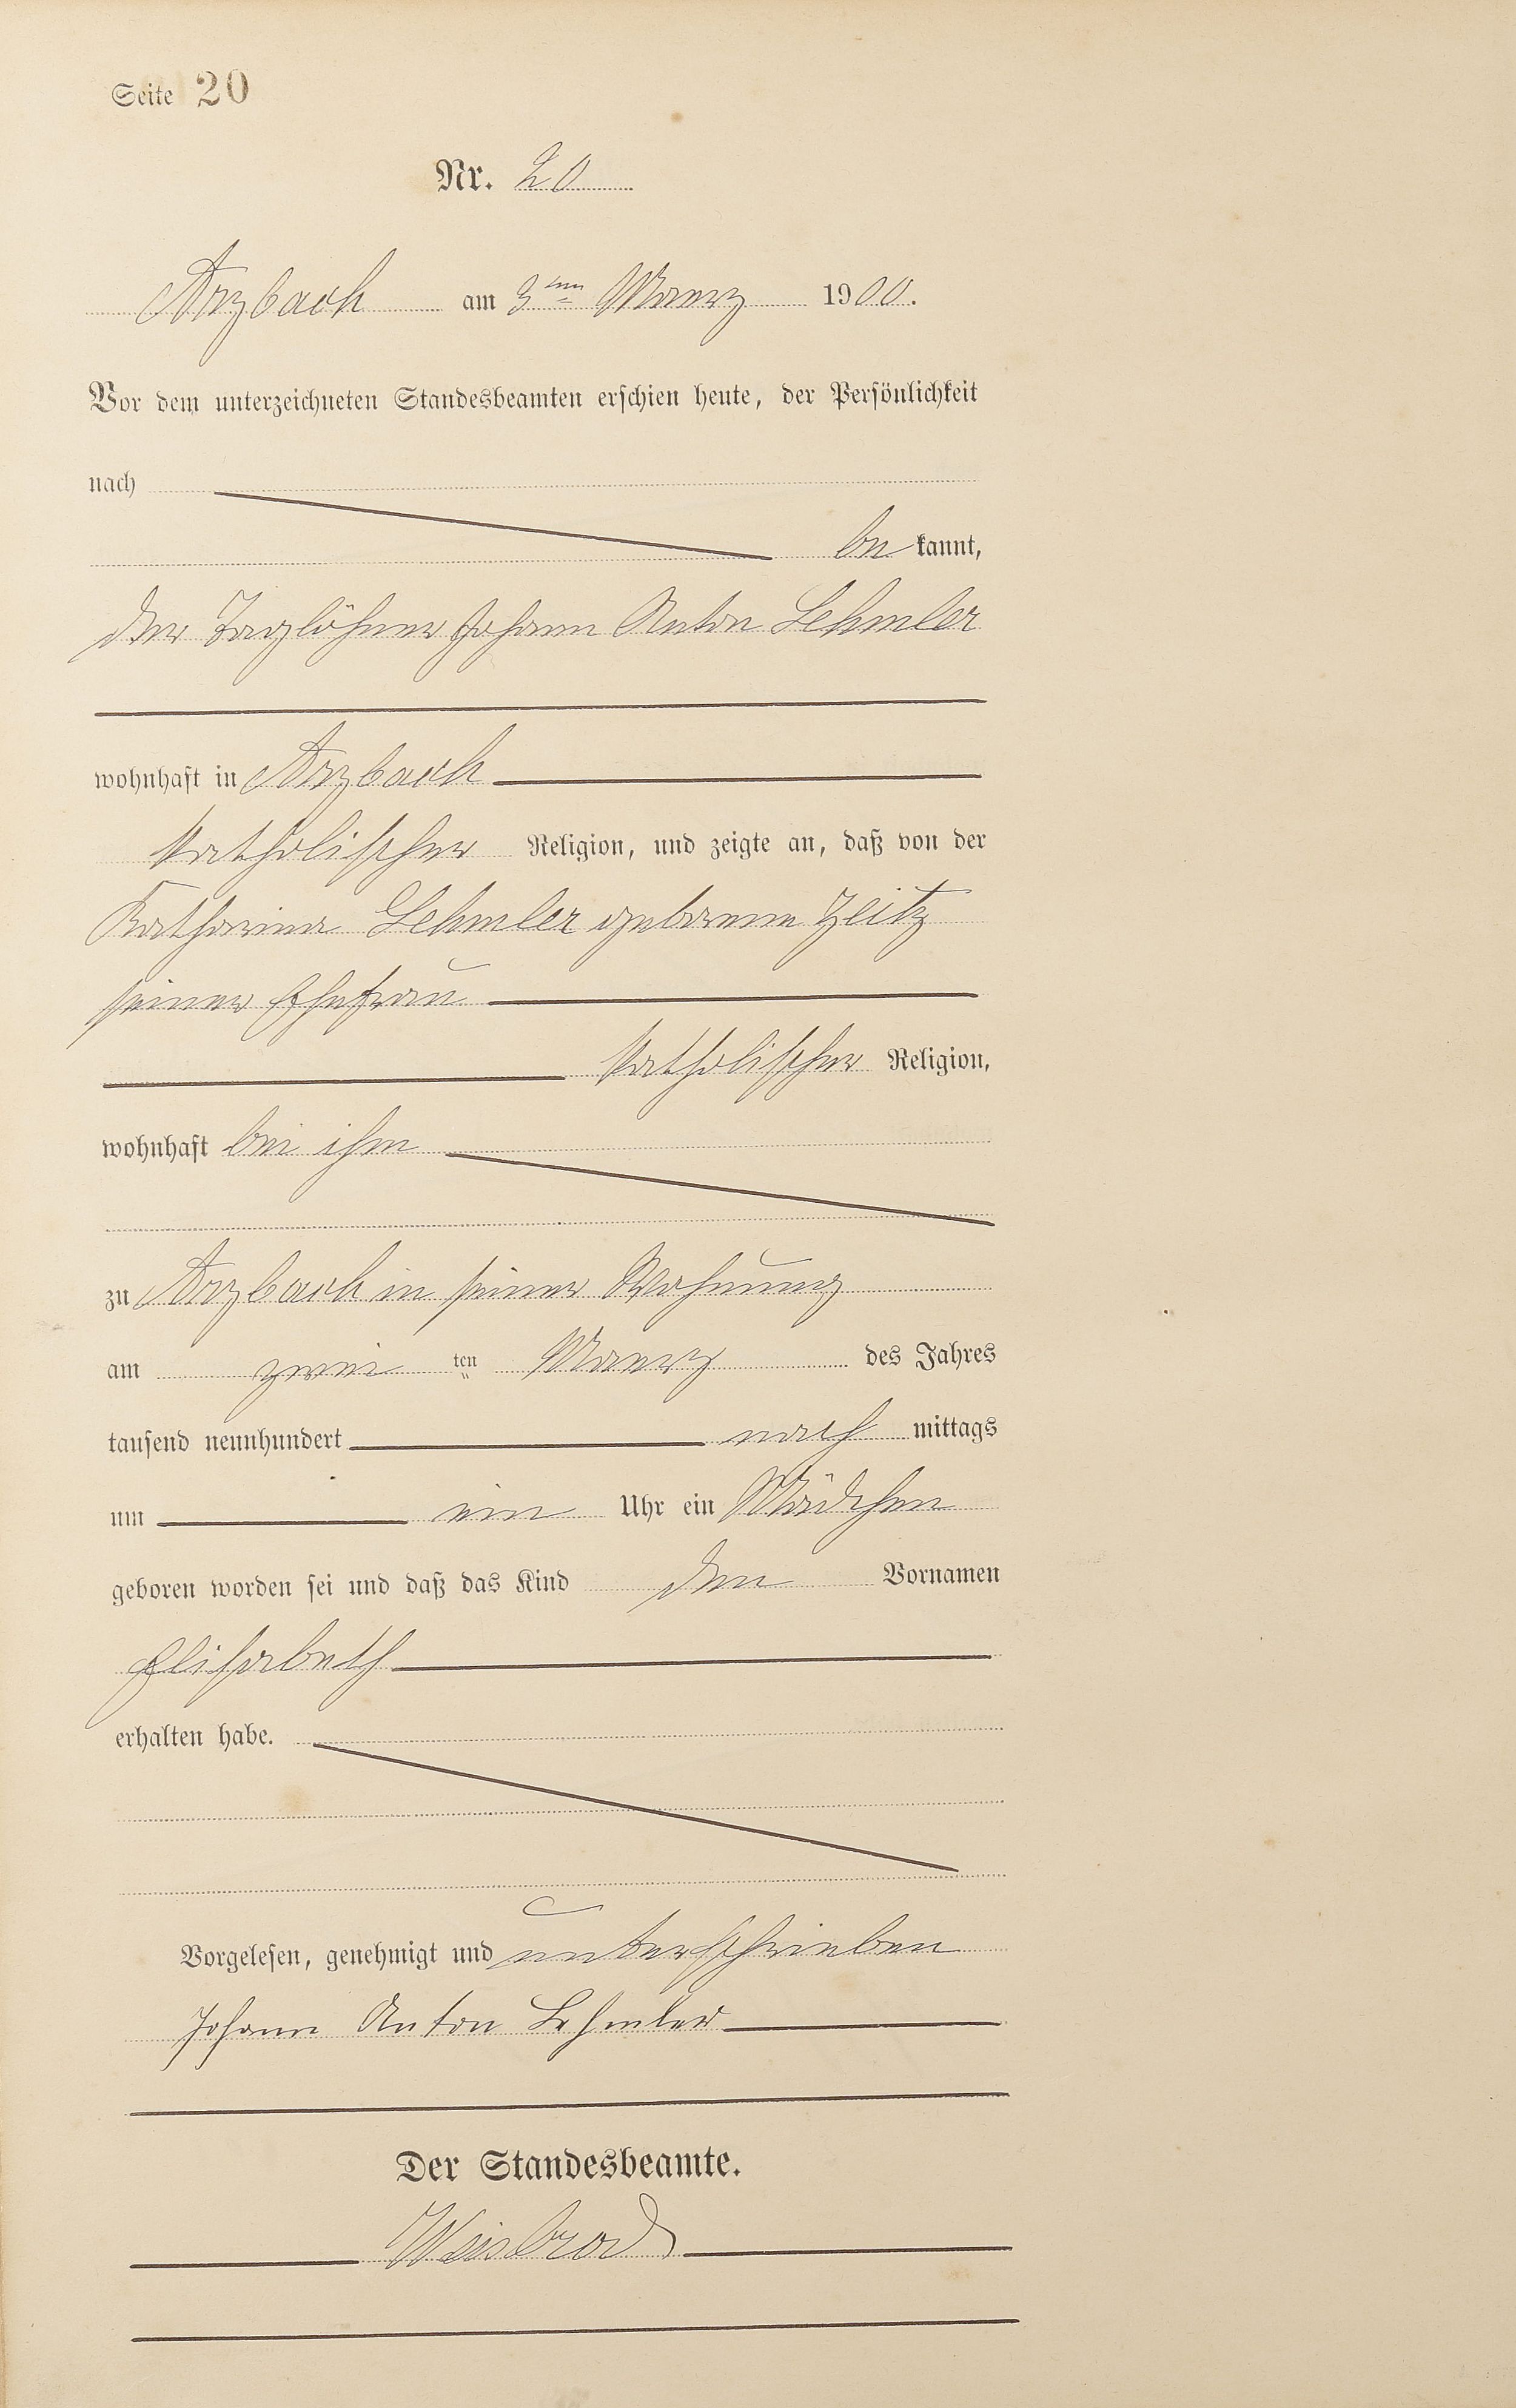 Seite 20
Nr. 20
Arzbach am 3ten Maerz 1900.
Vor dem unterzeichneten Standesbeamten erschien heute, der Persönlichkeit
nach
be kannt,
der Taglöhner Johann Anton Lehmler
wohnhaft in Arzbach
katholischer Religion, und zeigte an, daß von der
Katharina Lehmler geborene Zeitz
seiner Ehefrau
katholischer Religion,
wohnhaft bei ihm
zu Arzbach in seiner Wohnung
am zwei ten Maerz des Jahres
tausend neunhundert nach mittags
um ein Uhr ein Mädchen
geboren worden sei und daß das Kind den Vornamen
Elisabeth
erhalten habe.
Vorgelesen, genehmigt und unterschrieben
Johann Anton Lehmler
Der Standesbeamte.
Weisbrod